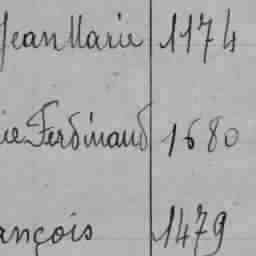 Jean Marie 1174
ie Ferdinand 1680
ançois 1479